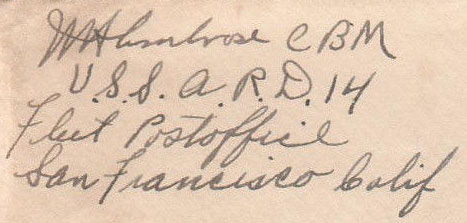 W H Ambrose CBM
U.S.S. A.R.D. 14
Fleet Postoffice
San Francisco Calif